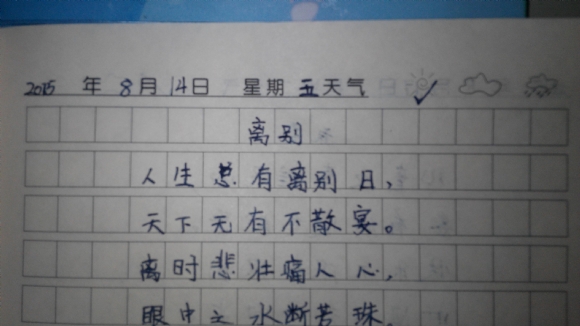 2015 年 8月 14日 星期 五 天气
离别
人生总有离别日,
天下无有不散宴。
离时悲壮痛人心,
眼中之水断若珠.